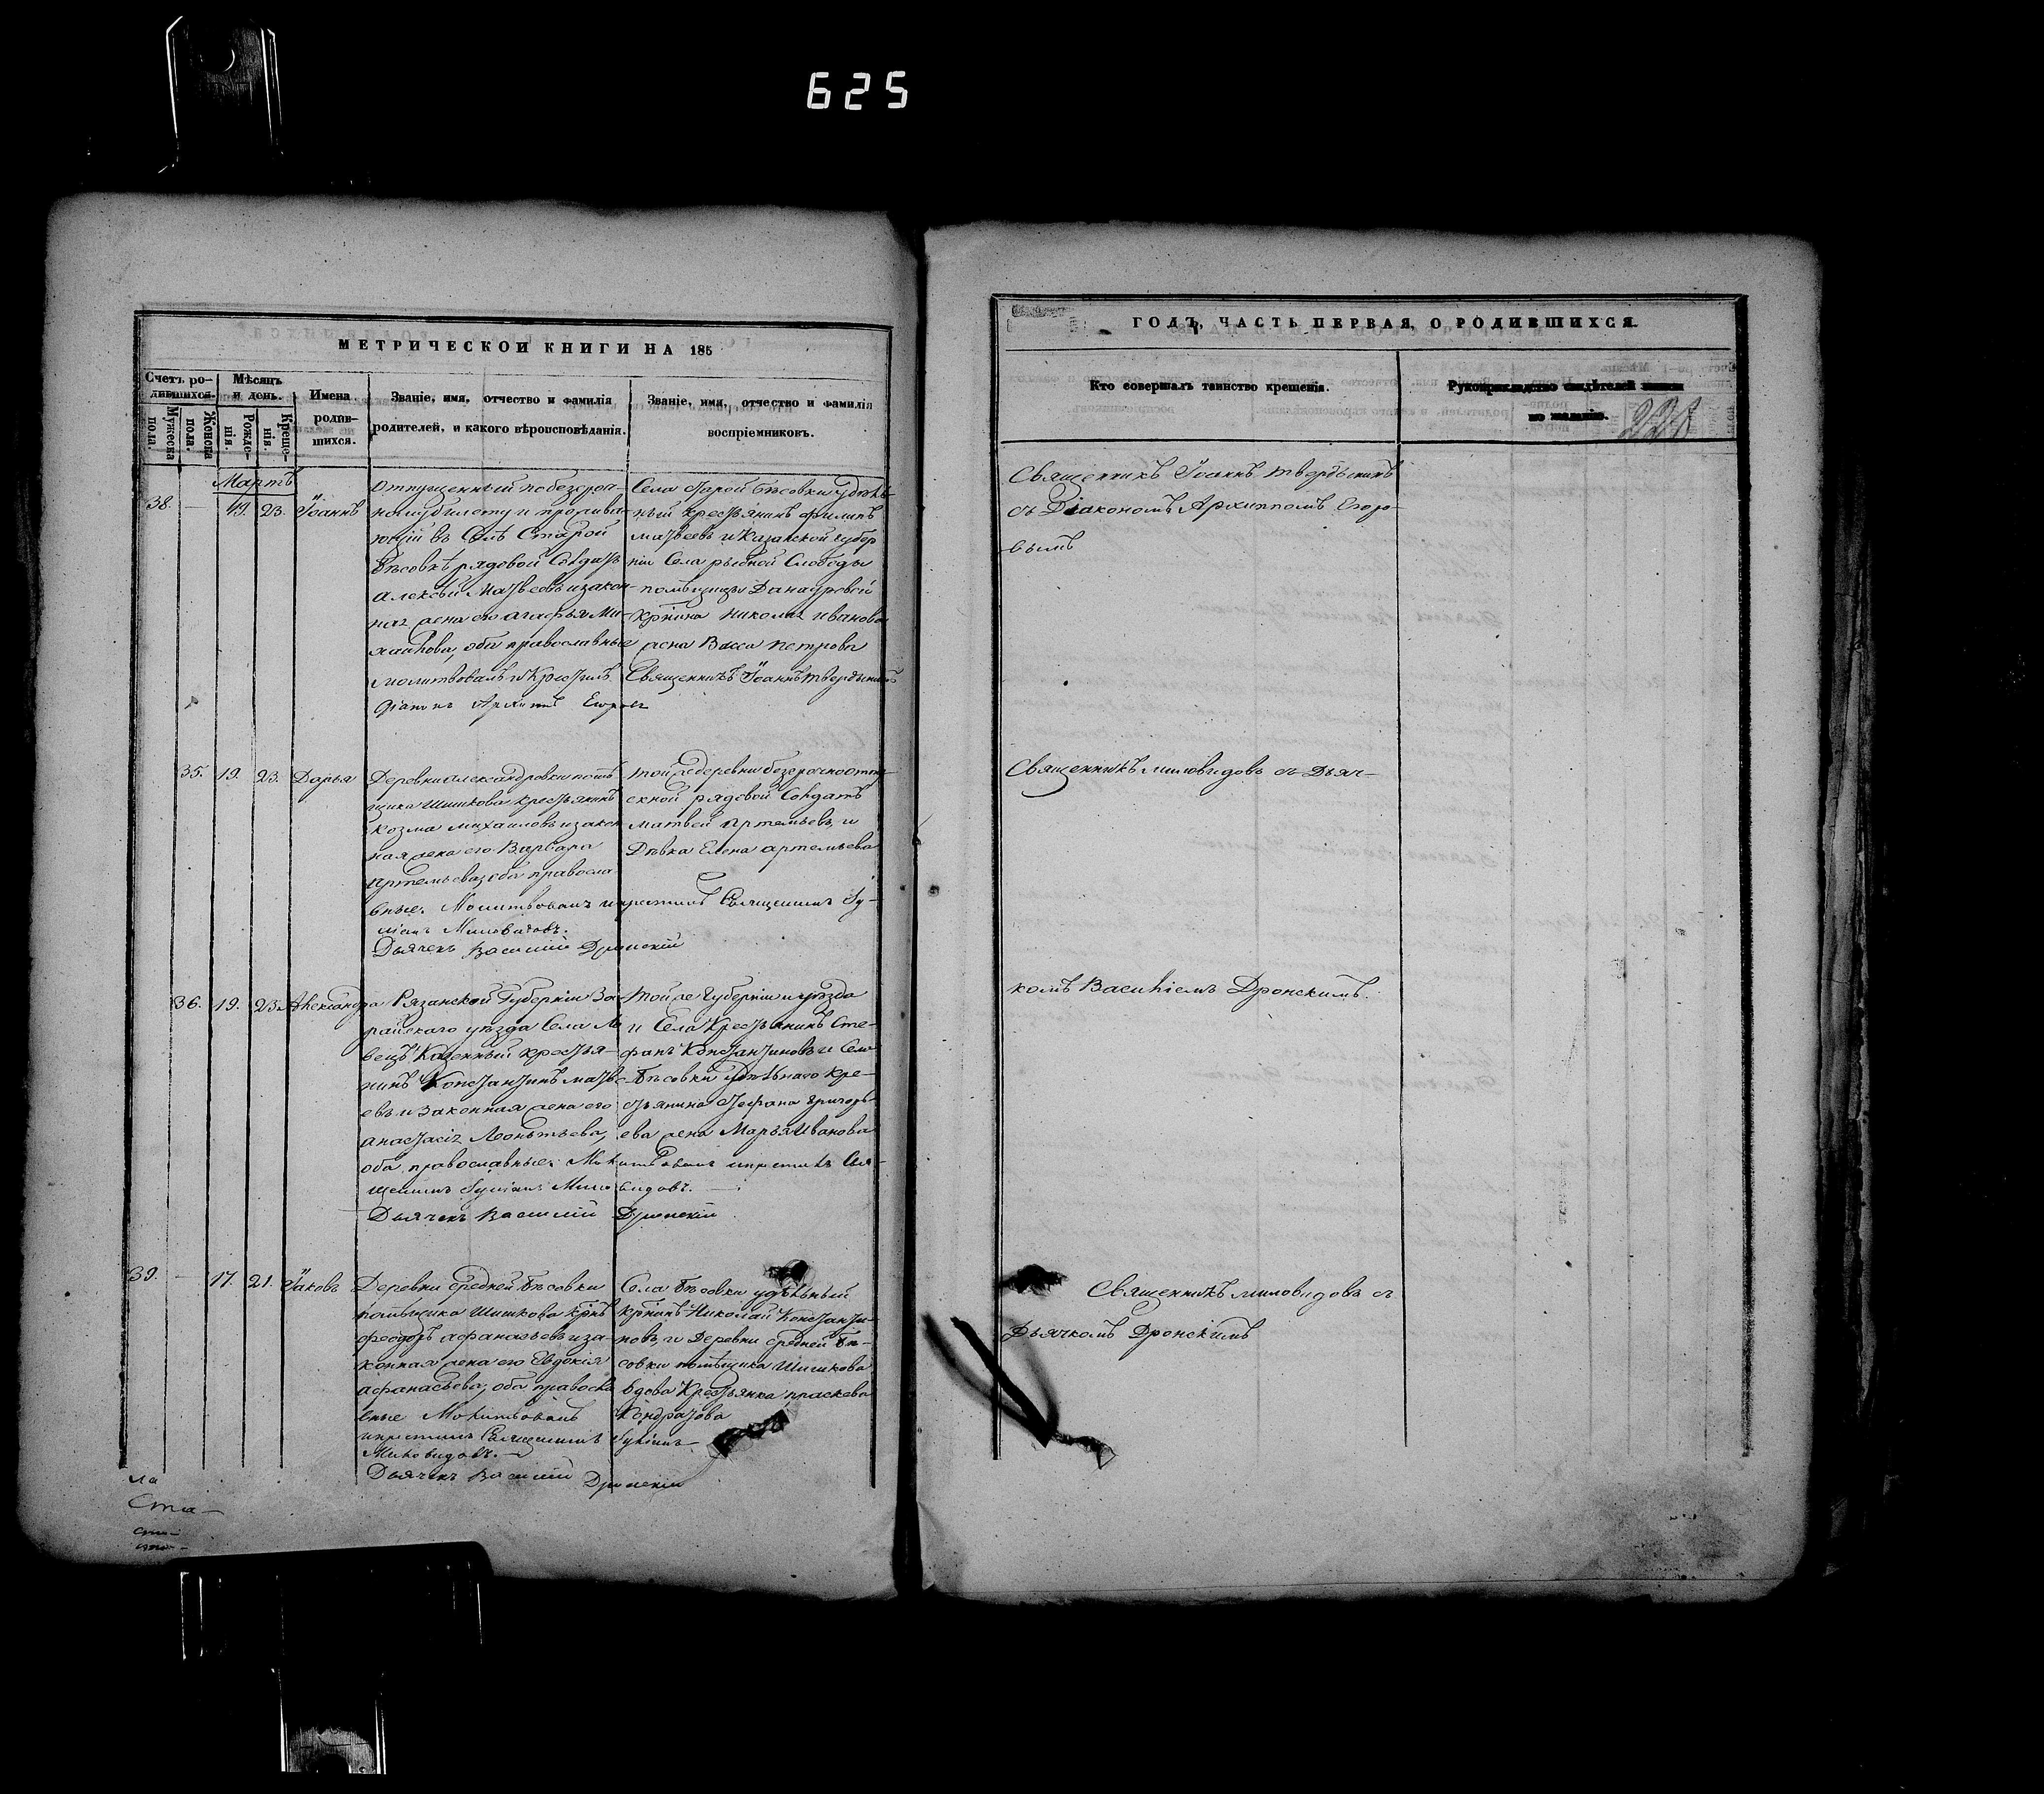 625
МЕТРИЧЕСКОЙ КНИГИ НА 185
Счетъ ро-
дившихся.
Мужеска
пола.
Женска
пола.
Мѣсяцъ
и день.
Рожде-
нія.
Креще-
нія.
Имена
родив-
шихся.
Званіе, имя, отчество и фамилія
родителей, и какого вѣроисповѣданія.
Званіе, имя, отчество и фамилія
воспріемниковъ.
Мартъ
38.
—
19.
23.
Іоаннъ
Отпущенный по безсроч-
ному билету и прожива-
ющій въ Селѣ Старой
Бѣсовкѣ рядовой Солдатъ
Алексѣй Матвеевъ и закон-
ная жена его Агафья Ми-
хайлова, оба православные
Молитвовалъ и Крестилъ Священникъ Іоаннъ Твердынинъ
Діаконъ Архиппъ Егоровъ
Села Старой Бѣсовки удѣль-
ный крестьянинъ Филипъ
Матвеевъ и Казанской губер
ніи Села рыбной Слободы
помѣщицы
Крѣстина Николая Иванова
жена Васса Петрова
35.
19.
23.
Дарья
Деревни Александровки помѣ
щика Шишкова крестьянинъ
Козма Михаиловъ и закон
ная жена его Варвара
Артемьева, оба правосла
вные. Молитвовалъ и крестилъ Священникъ Іу-
ліанъ Миловидовъ.
Дьячекъ Василій Дронскій
Той же деревни безсрочноотпу
скной рядовой Солдатъ
Матвей Артемьевъ, и
Дѣвка Елена Артемьева
36.
19.
23.
Александра
Рязанской Губерніи За-
райскаго уѣзда Села Ло
вецъ Казенный крестья-
нинъ Константинъ Матв
евъ и законная жена его
Анастасія Леонтьева,
оба православные. Молитвовалъ и крестилъ Свя-
щенникъ Іуліанъ Миловидовъ.
Дьячекъ Василій Дронскій
Той же Губерніи и уѣзда
и Села Крестьянинъ Сте-
фанъ Константиновъ и Села
Бѣсовки Удѣльнаго кре-
стьянина Стефана Григорь-
ева жена Марья Иванова
39.
—
17.
21.
Іаковъ
Деревни Средней Бѣсовки
помѣщика Шишкова крѣнъ
Феодоръ Афанасьевъ и за-
конная жена его Евдокія
Афанасьева, оба правосла
вные Молитвовалъ
и крестилъ Священникъ Іуліанъ
Миловидовъ.
Дьячекъ Василій Дронскій
Села Бѣсовки удѣльный
крѣнинъ Николай Константи-
новъ, и Деревни Средней Бѣ-
совки помѣщика Шишкова
вдова Крестьянка Праскева
Кондратова
ла
Ста-
ГОДЪ, ЧАСТЬ ПЕРВАЯ, О РОДИВШИХСЯ.
Кто совершалъ таинство крещенія.
Рукоприкладство свидѣтелей записи
по желанію.
Священникъ Іоаннъ Твердынинъ
съ Діакономъ Архиппомъ Егоро-
вымъ
Священникъ Миловидовъ съ Дьяч-
комъ Василіемъ Дронскимъ.
Священникъ Миловидовъ съ
Дьячкомъ Дронскимъ